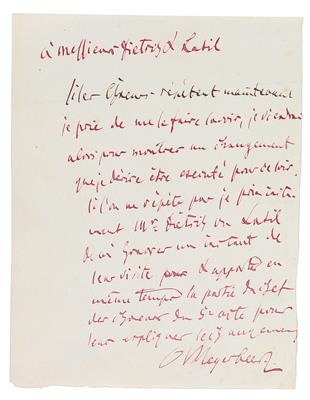 à messieurs Dietsch & Labil
Si les Choeurs répètent maintenant
je prie de me le faire savoir, je viendrai
alors pour montrer un changement
que je désire être executé pour ce soir.
Si l'on ne répète pas je prie
Mr. Dietsch ou Labil
de un instant de
leur visite pour & apporter en
même temps la partie
des choeurs du acte pour
leur expliquer
Meyerbeer